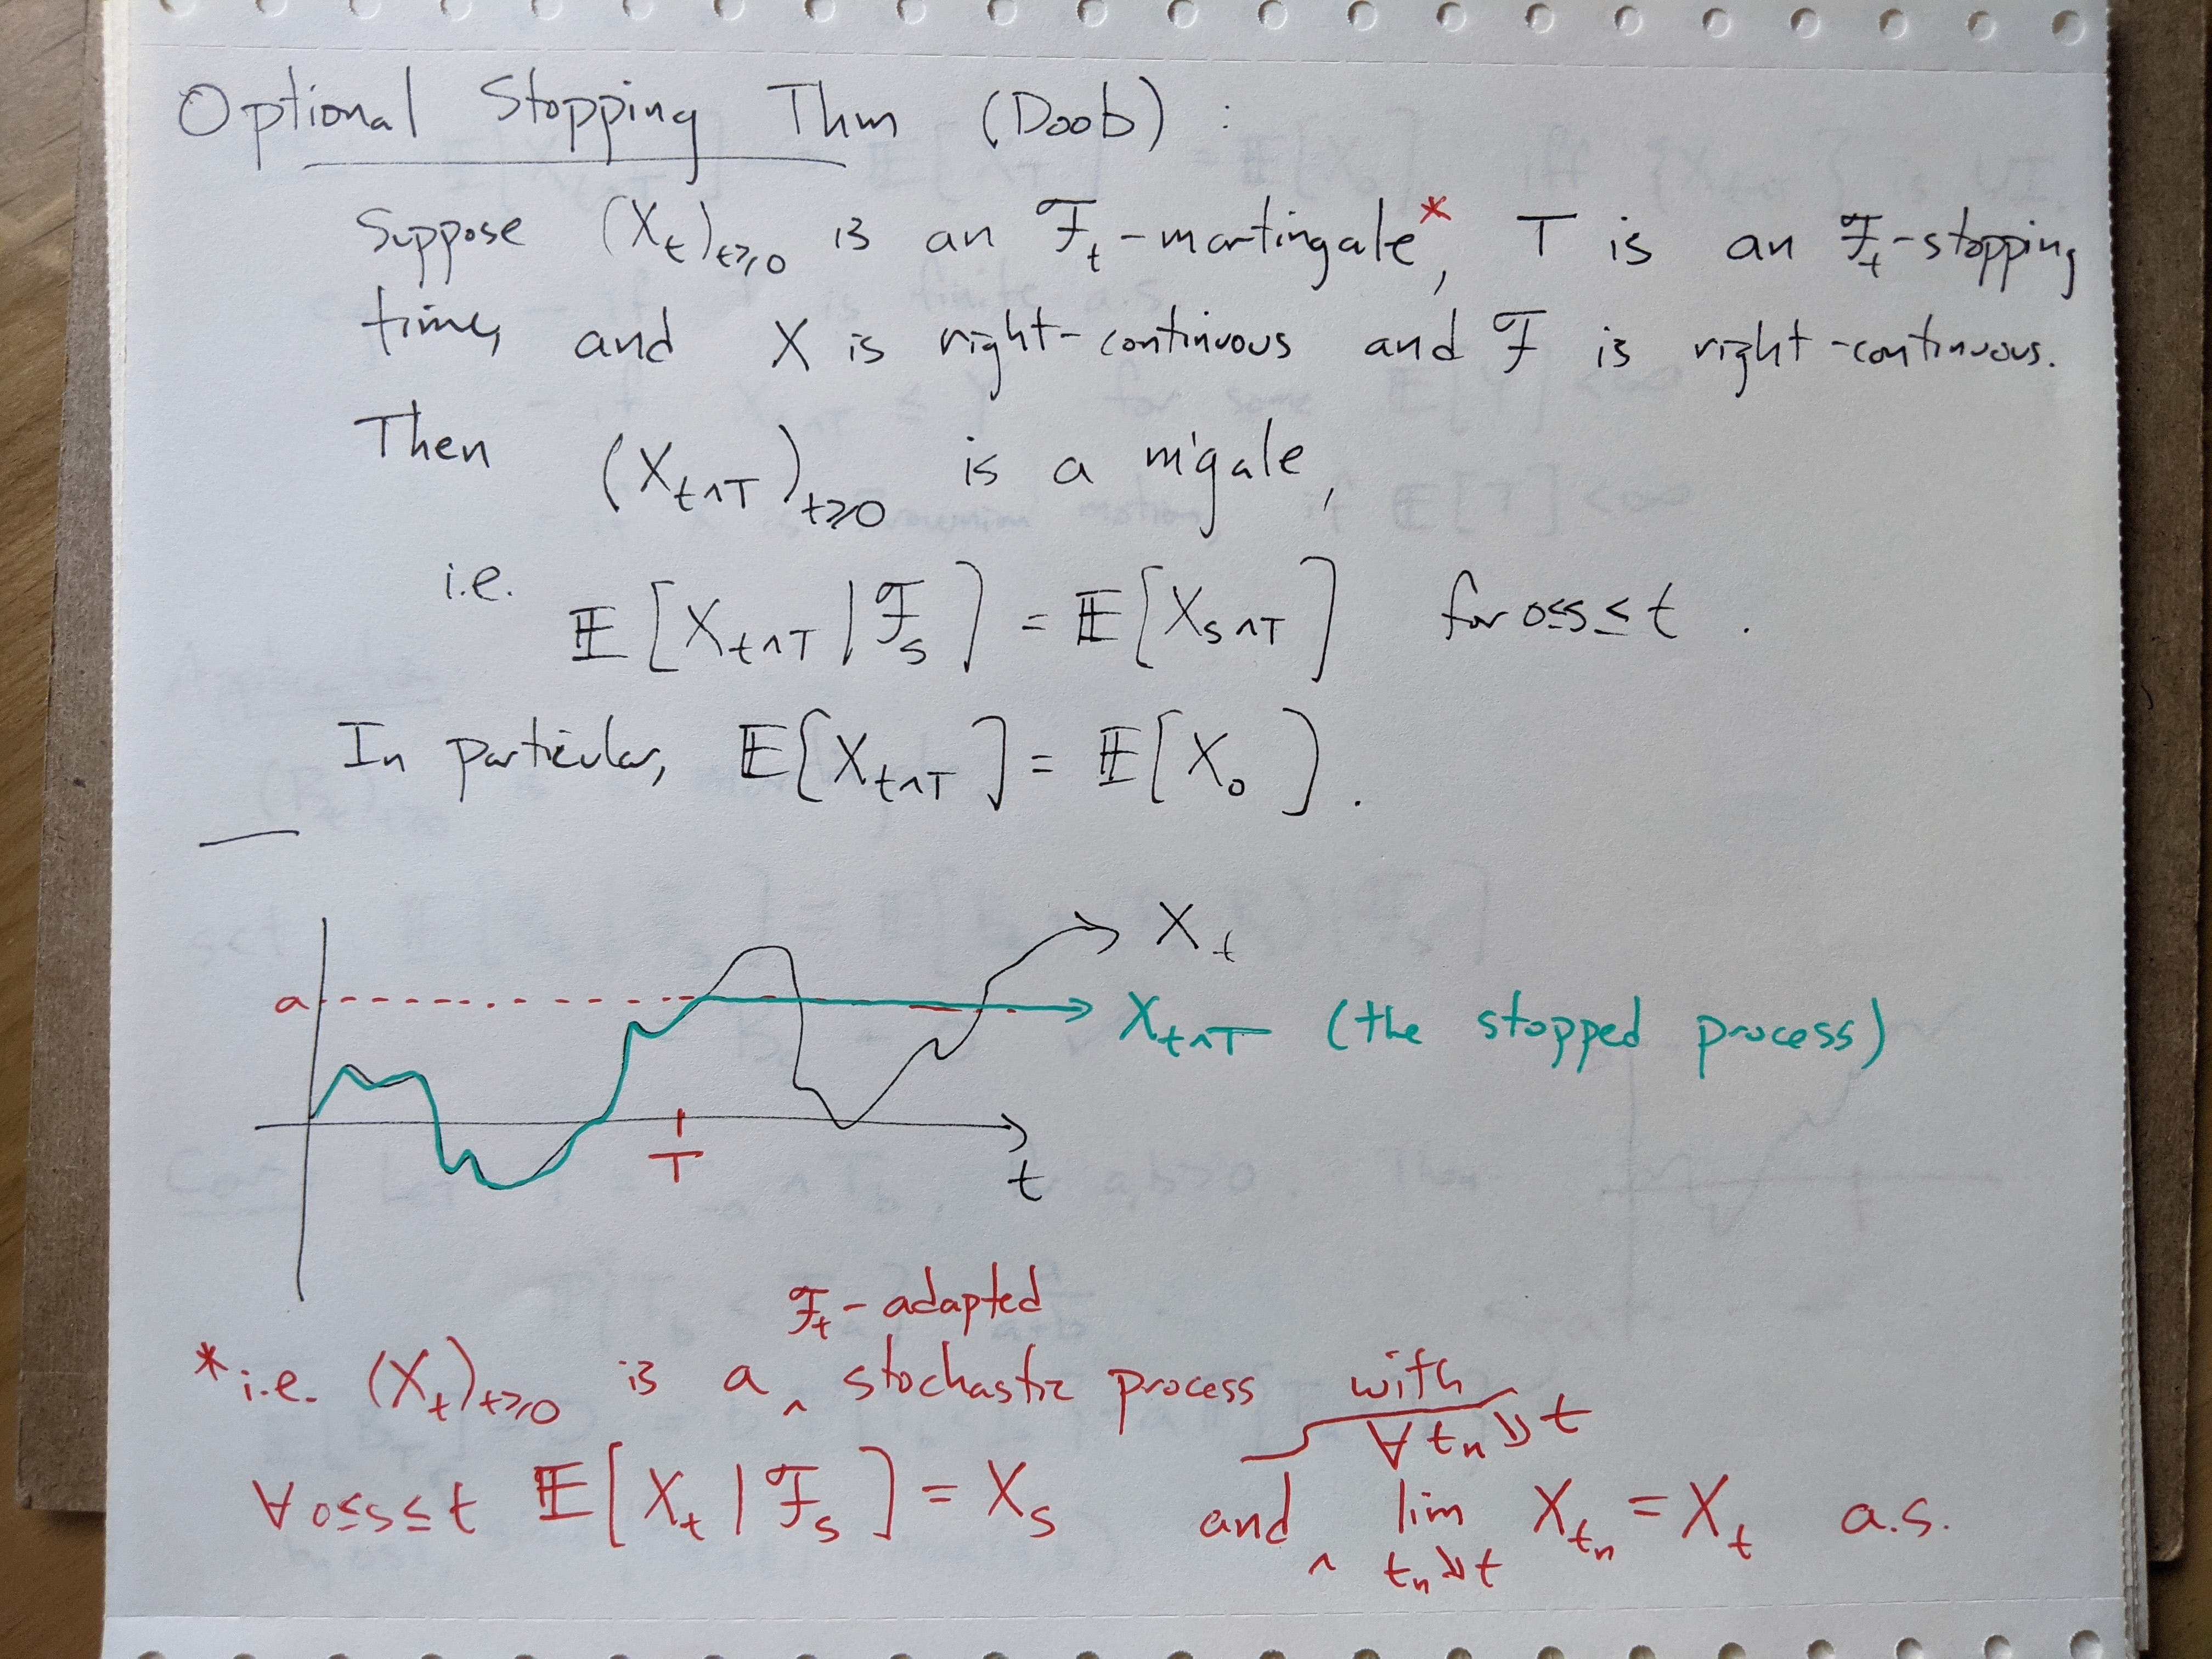 Optional Stopping Thm (Doob) :
Suppose (X_t)_{t≥0} is an ℱ_t-martingale*, T is an ℱ_t-stopping
time, and X is right-continuous and ℱ is right-continuous.
Then (X_{t∧T})_{t≥0} is a m'gale,
i.e. 𝔼[X_{t∧T} | ℱ_s] = 𝔼[X_{s∧T}] for 0≤s≤t.
In particular, 𝔼[X_{t∧T}] = 𝔼[X_0].
X_t
a
X_{t∧T} (the stopped process)
T
t
ℱ_t-adapted
*i.e. (X_t)_{t≥0} is a ^ stochastic process with
∀ t_n ↘ t
∀ 0≤s≤t 𝔼[X_t | ℱ_s] = X_s and ^ lim_{t_n↘t} X_{t_n} = X_t a.s.